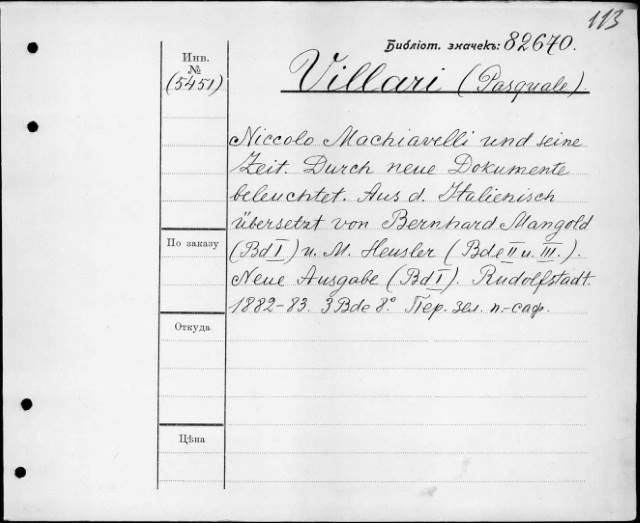 113
Библіот. значекъ: 82670.
Инв.
№
(5451)
Villari (Pasquale).
Niccolo Machiavelli und seine
Zeit. Durch neue Dokumente
beleuchtet. Aus d. Italienisch
übersetzt von Bernhard Mangold
По заказу
(Bd I) u. M. Heusler (Bde II u. III.).
Neue Ausgabe (Bd I). Rudolfstadt.
1882-83. 3 Bde 8°. Пер. зел. п.-саф.
Откуда
Цѣна